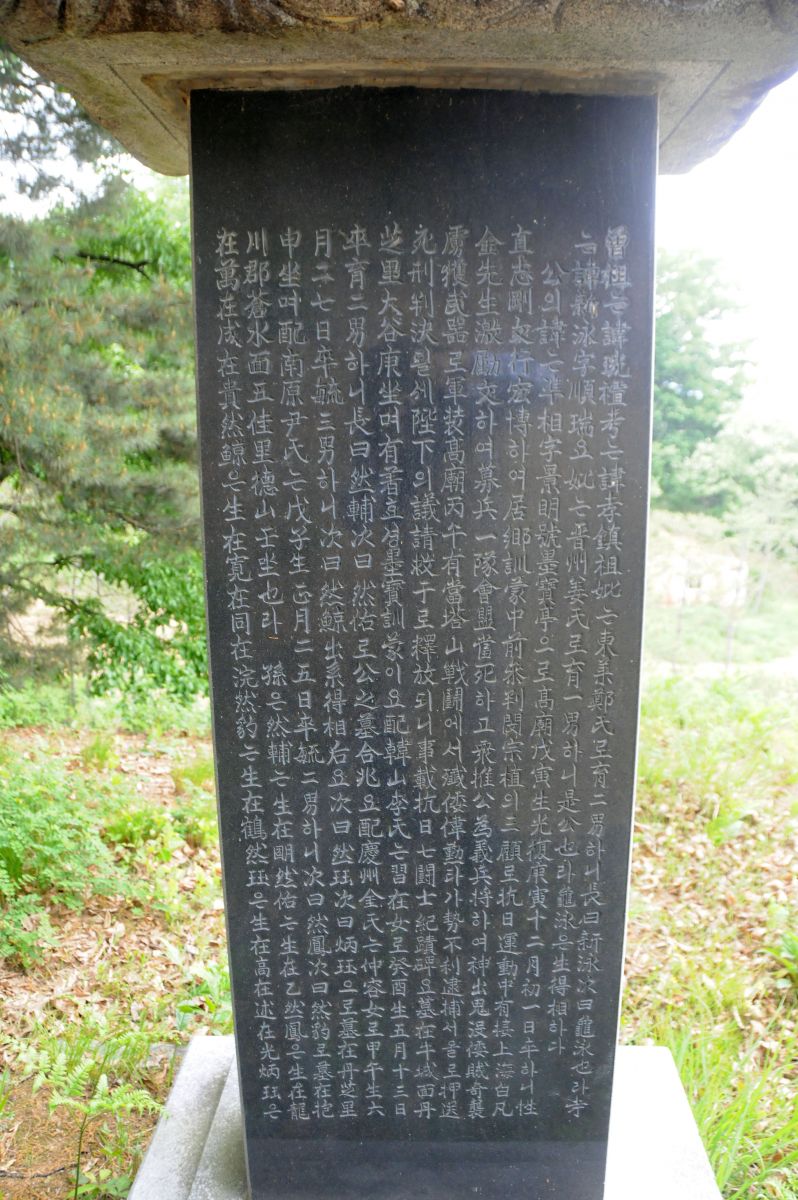 曾祖는諱琥禮考는諱孝鎭祖妣는東萊鄭氏로育二男하니長曰新泳次曰龍泳也라考
는諱新泳字順瑞요妣는晋州姜氏로育一男하니是公也라龍泳은生得相하다
公의諱는準相字景明號墨寶亭으로高廟戊寅生光復庚寅十二月初一日卒하니性
直志剛文行宏博하여居鄕訓蒙中前參判閔宗植의三顧로抗日運動中有接上海白凡
金先生激勵文하여募兵一隊會盟當死하고衆推公為義兵將하여神出鬼沒倭賊奇襲
虜獲武器로軍裝高廟丙午有當塔山戰鬪에서滅倭偉勳타가勢不利逮捕서울로押送
死刑判決될새陛下의議請授于로釋放되니事載抗日七鬪士紀蹟碑요墓在牛城面丹
芝里大谷庚坐며有著互名墨寶訓蒙이요配韓山李氏는習在女로癸酉生五月十三日
卒育二男하니長曰然輔次曰然佑로公之墓合兆요配慶州金氏는仲容女로甲午生六
月二七日卒毓三男하니次曰然鯨出系得相后요次曰然珏次曰炳珏으로墓在丹芝里
申坐며配南原尹氏는戊子生正月二五日卒毓二男하니次曰然鳳次曰然豹로墓在抱
川郡蒼水面五佳里德山壬坐也라 孫은然輔는生在明然佑는生在乙然鳳은生在龍
在萬在成在貴然鯨은生在寬在同在浣然豹는生在鶴然珏은生在高在述在光炳珏은